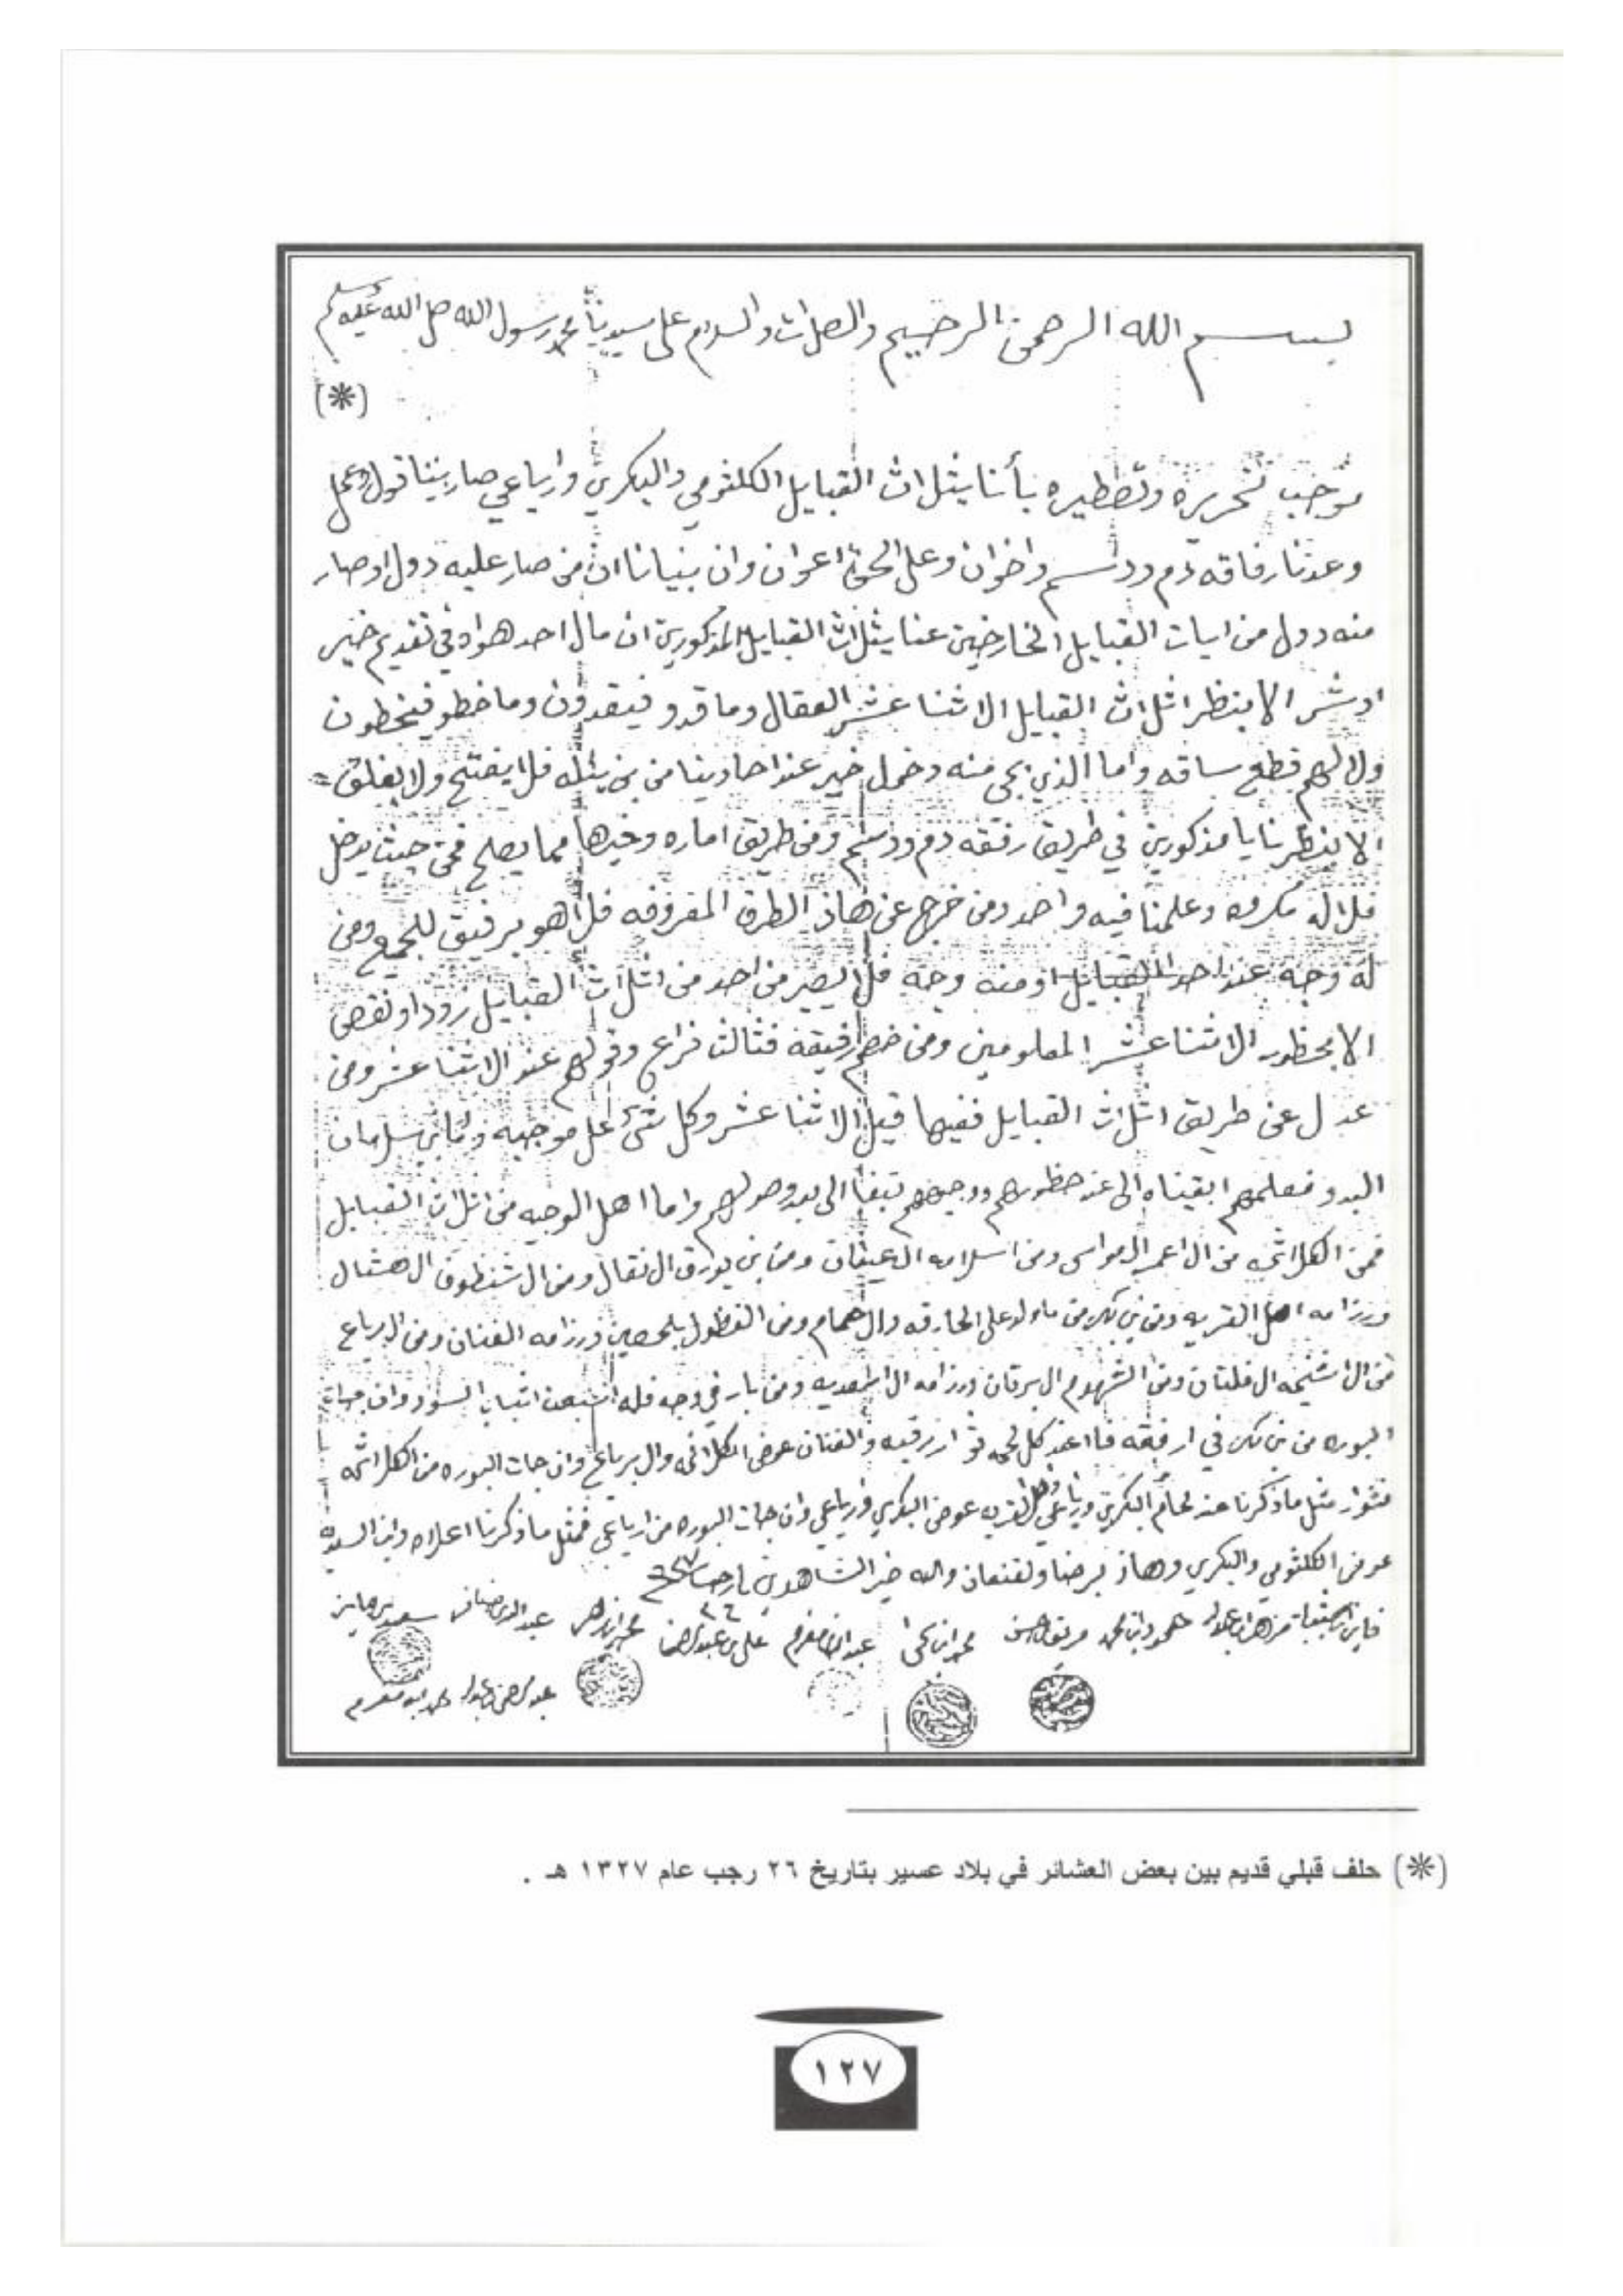 بسم الله الرحمن الرحيم والصلات والسلام على سيدينا محمد رسول الله صل الله عليه وسلم
(*)
موجب تحريره وتصطيره بأننا يثلاث القبايل الكلثومي والبكري وارباعي صار بيننا قول وعمل
وعدنا رفاقه دم ودسم واخوان وعلى الحق اعوان وان بنياننا ان من صار عليه دول او صار
منه دول من ايات القبايل الخارجين عنا يثلاث القبايل المذكورين ان مال احد هواه في تقديم خير
او شر الا بنظر اثلاث القبايل الاثنا عشر العقال وما قدو فيقدون وما خطو فيخطون
ولا لهم قطع ساقه واما الذي يجي منه دخمل خير عند احاد ينا من يئله فلا يفتح ولا يغلق =
الا بنظرنا يا مذكورين في طريق رفقه دم ودسم ومن طريق اماره وغيرها مما يصلح فمن حيث يدخل
فلاله مكروه وعلمنا فيه واحد ومن خرج عن هاذ الطرق المعروفه فلا هو برفيق للجميع ومن
له وجه عند احد القبايل او منه وجه فلا يصير من احد من اثلاث القبايل رود او نقص
الا بحظور الاثنا عشر المعلومين ومن خصم رفيقه فثالث فزاع وقولهم عند الاثنا عشر ومن
عدل عن طريق اثلاث القبايل ففيها قيل الاثنا عشر وكل شئ على موجبه سلمان
البدو فعلمهم ابقيناه الى عند حظورهم ووجيههم تبقا الى بدو صولهم واما اهل الوجيه من اثلاث القبايل
فمن الكلاثمه من ال اعمر ال مواسى ومن اسلامه ال عيفان ومن بن يورق ال نقال ومن ال شنظوف ال هشال
ورزامه اهل القريه ومن بن بكر من ماولد علي الحارقه وال همام ومن الفظول بلحصين ورزامه الفنان ومن ال رباع
من ال اشيخه ال فلتان ومن الشهوم ال برقان ورزامه ومن بار في وجه فله اتباب السود وان جات
البوره من بن بكر في ارفقه فا عند كل لحمه ثوار رقبه والفنان عوض الكلاثمه وال برباع وان جات البوره من اكلاثمه
فثوار مثل ما ذكرنا عند لحام البكري ورباعي عوض البكري وارباعي وان جات البوره من ارباعي فمثل ما ذكرنا اعلاه
عوض الكلثومي والبكري وهاذ برضا ولقنعان والله خير الشاهدين
٢٦
محمد ابن يحيا علي بن عبدالرحمن
(*) حلف قبلي قديم بين بعض العشائر في بلاد عسير بتاريخ ٢٦ رجب عام ١٣٢٧ هـ .
١٢٧